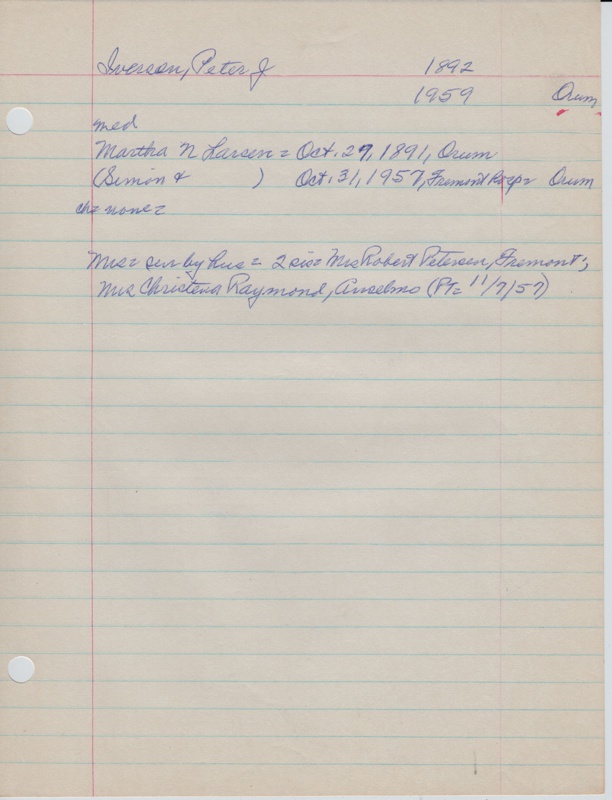 Iverson, Peter J 1892
1959 Orum
med
Martha N Larsen = Oct. 29, 1891, Orum
(Simon & ) Oct. 31, 1957, Fremont Hosp = Orum
ch = none =
Mrs = sur by hus = 2 sis = Mrs Robert Petersen, Fremont;
Mrs Christena Raymond, Anselmo (PT = 11/7/57)